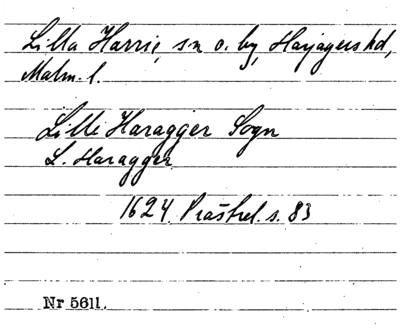 Lilla Harrie, sn o. by, Harjagers hd,
Malm. l.
Lilli Haragger Sogn
L. Haragger
1624 Prästrel. s. 83
Nr 5611.